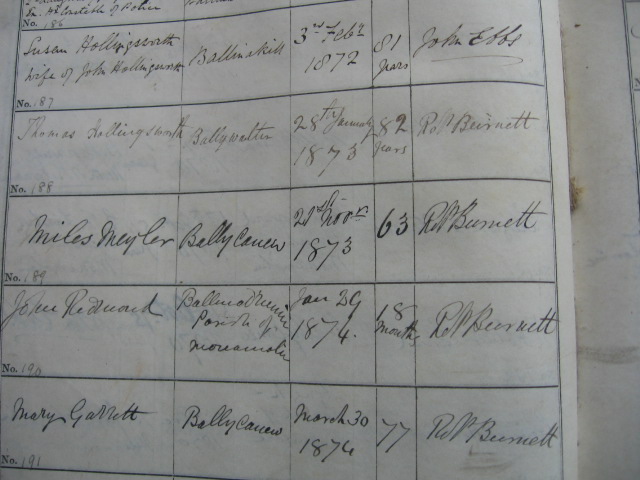 of Police
No. 186
Susan Hollingsworth
wife of John Hollingsworth
Ballinskill
3rd Feby
1872
81
years
John Ebbs
No. 187
Thomas Hollingsworth
Ballywalter
28th January
1873
82
years
Robt Burnett
No. 188
Miles Meyler
Ballycanew
21st Novr
1873
63
Robt Burnett
No. 189
John Redmond
Parish of
Monamolin
Jan 29
1874.
18
Months
Robt Burnett
No. 190
Mary Garrett
Ballycanew
March 30
1874
77
Robt Burnett
No. 191